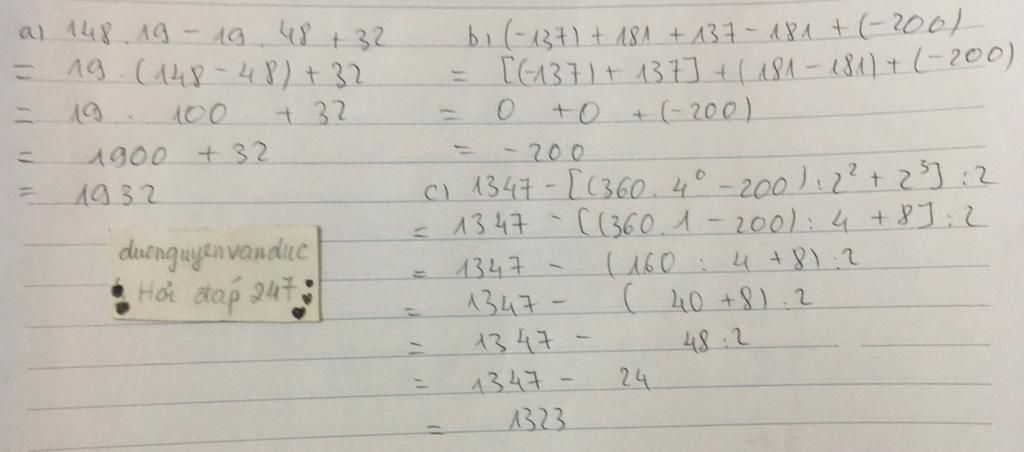 a) 148 . 19 - 19 . 48 + 32
= 19 . (148 - 48) + 32
= 19 . 100 + 32
= 1900 + 32
= 1932
b) (-137) + 181 + 137 - 181 + (-200)
= [(-137) + 137] + (181 - 181) + (-200)
= 0 + 0 + (-200)
= -200
c) 1347 - [(360 . 4⁰ - 200) : 2² + 2³] : 2
= 1347 - [(360 . 1 - 200) : 4 + 8] : 2
= 1347 - (160 : 4 + 8) : 2
= 1347 - ( 40 + 8) : 2
= 1347 - 48 : 2
= 1347 - 24
= 1323
ducnguyenvanduc
Hỏi đáp 247